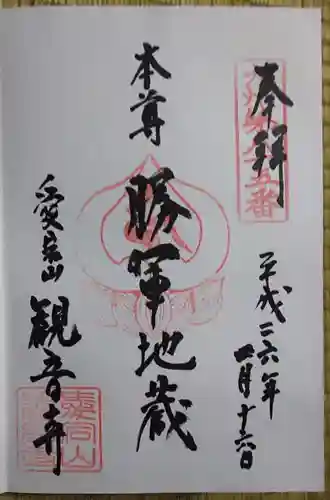 奉拝
平成二六年
四月十六日
本尊
勝軍地蔵
愛宕山
観音寺